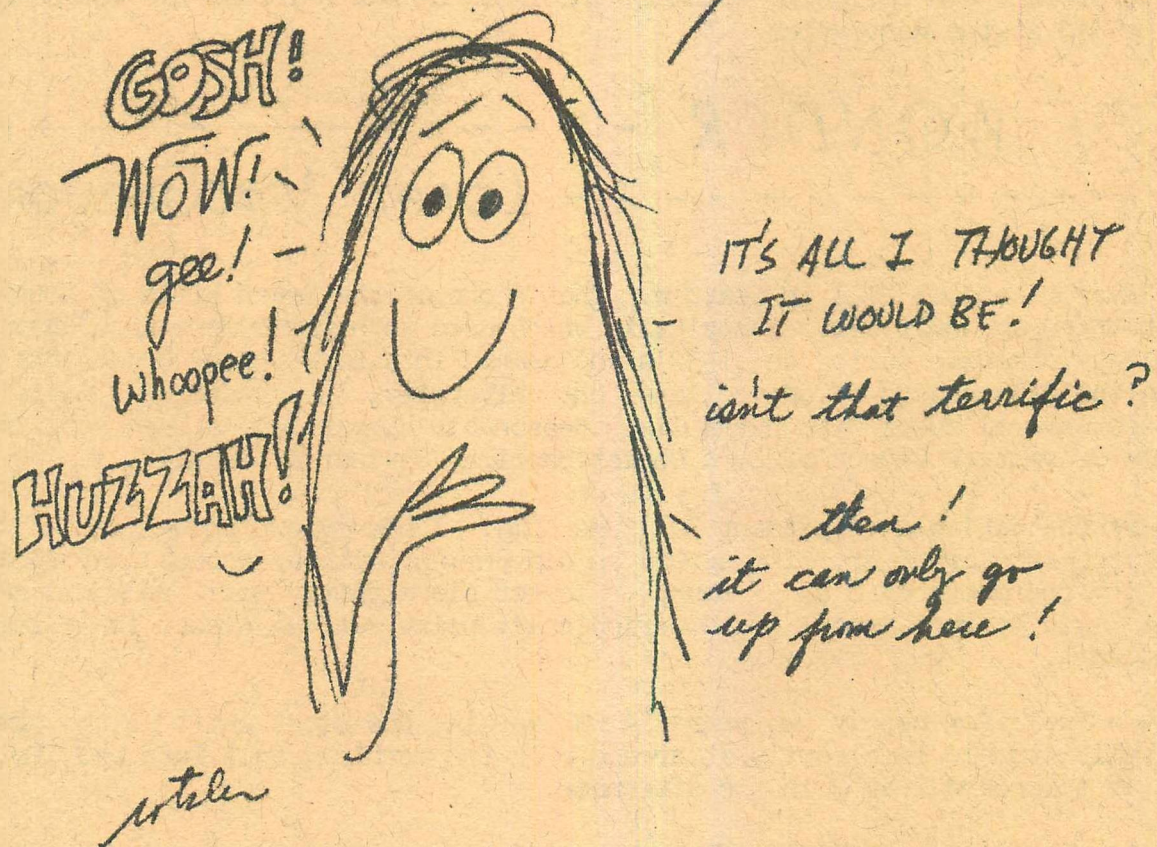 GOSH!
WOW!
gee!
whoopee!
HUZZAH!
IT'S ALL I THOUGHT
IT WOULD BE!
isn't that terrific?
then!
it can only go
up from here!
rotsler